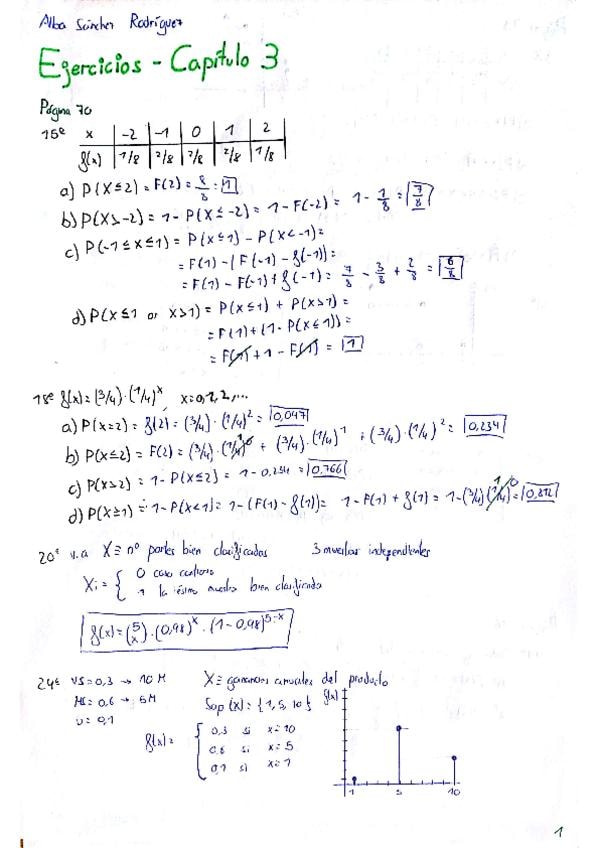 Alba Sánchez Rodríguez
Ejercicios - Capítulo 3
Página 70
15º x | -2 | -1 | 0 | 1 | 2
f(x) | 1/8 | 2/8 | 2/8 | 2/8 | 1/8
a) P(X≤2) = F(2) = 8/8 = 1
b) P(X>-2) = 1 - P(X≤-2) = 1 - F(-2) = 1 - 1/8 = 7/8
c) P(-1≤x≤1) = P(x≤1) - P(x<-1) =
= F(1) - (F(-1) - f(-1)) =
= F(1) - F(-1) + f(-1) = 7/8 - 3/8 + 2/8 = 6/8
d) P(x≤1 or x>1) = P(x≤1) + P(x>1) =
= F(1) + (1 - P(x≤1)) =
= F(1) + 1 - F(1) = 1
18º f(x) = (3/4)·(1/4)^x x=0,1,2,...
a) P(x=2) = f(2) = (3/4)·(1/4)^2 = 0,047
b) P(x≤2) = F(2) = (3/4)·(1/4)^0 + (3/4)·(1/4)^1 + (3/4)·(1/4)^2 = 0,234
c) P(x>2) = 1 - P(x≤2) = 1 - 0,234 = 0,766
d) P(x≥1) = 1 - P(x<1) = 1 - (F(1) - f(1)) = 1 - F(1) + f(1) = 1 - (3/4)(1/4)^0 =
20º v.a X ≡ nº partes bien clasificadas 3 muestras independientes
Xi = { 0 caso contrario
1 la iésima muestra bien clasificada
f(x) = (5 x)·(0,98)^x·(1-0,98)^5-x
24º VS=0,3 → 10 M X ≡ ganancias anuales del producto
MS=0,6 → 5M Sop (x) = {1, 5, 10}
U=0,1
f(x) = { 0,3 si x=10
0,6 si x=5
0,1 si x=1
f(x)
1 5 10
1